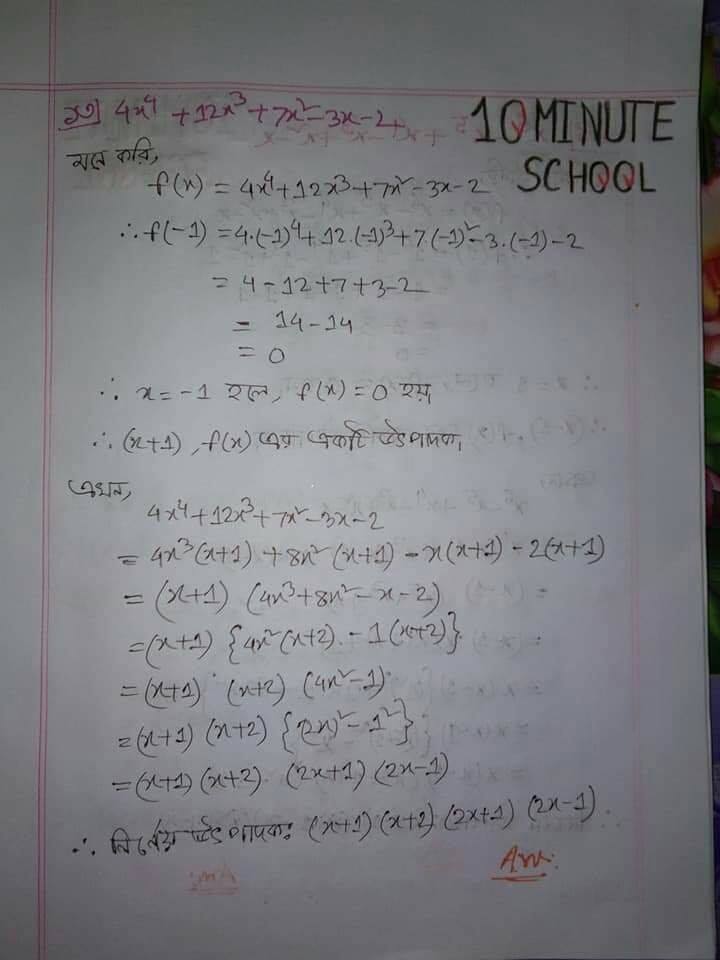 ১৩) 4x⁴ + 12x³ + 7x² - 3x - 2
10 MINUTE
SCHOOL
মনে করি,
f(x) = 4x⁴ + 12x³ + 7x² - 3x - 2
∴ f(-1) = 4·(-1)⁴ + 12·(-1)³ + 7(-1)² - 3·(-1) - 2
= 4 - 12 + 7 + 3 - 2
= 14 - 14
= 0
∴ x = -1 হলে, f(x) = 0 হয়
∴ (x+1), f(x) এর একটি উৎপাদক।
এখন,
4x⁴ + 12x³ + 7x² - 3x - 2
= 4x³(x+1) + 8x²(x+1) - x(x+1) - 2(x+1)
= (x+1) (4x³ + 8x² - x - 2)
= (x+1) {4x²(x+2) - 1(x+2)}
= (x+1) (x+2) (4x² - 1)
= (x+1) (x+2) {(2x)² - 1²}
= (x+1) (x+2) (2x+1) (2x-1)
∴ নির্ণেয় উৎপাদক: (x+1) (x+2) (2x+1) (2x-1)
Ans: